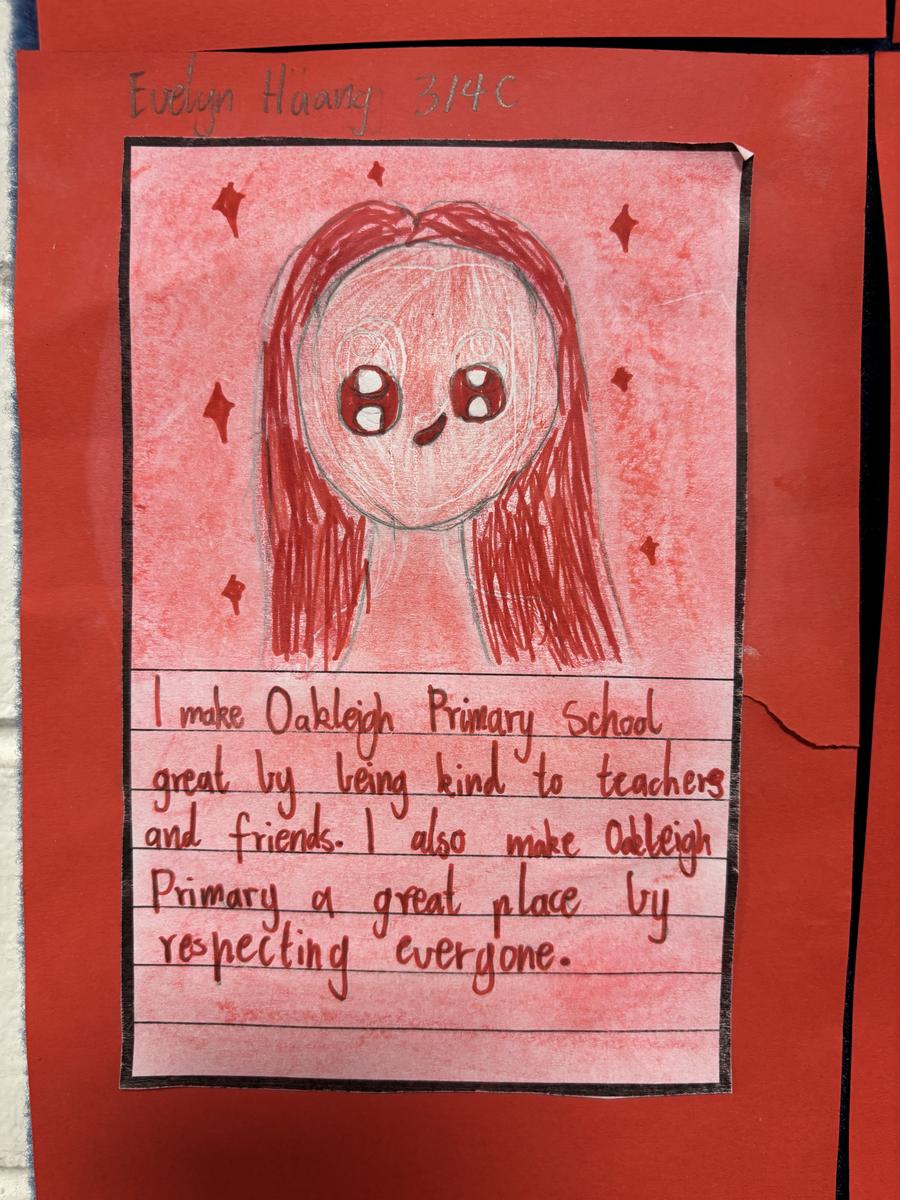 Evelyn Huang 3/4C
I make Oakleigh Primary School
great by being kind to teachers
and friends. I also make Oakleigh
Primary a great place by
respecting everyone.